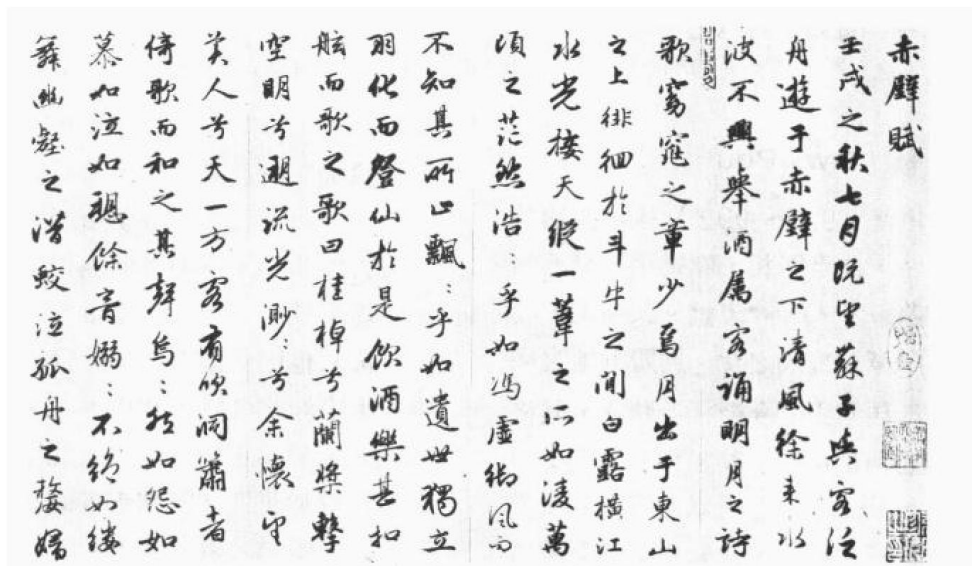 赤壁賦
壬戌之秋七月既望蘇子與客泛
舟遊于赤壁之下清風徐來水
波不興舉酒属客誦明月之詩
歌窈窕之章少焉月出于東山
之上徘徊於斗牛之間白露橫江
水光接天縱一葦之所如淩萬
頃之茫然浩:乎如馮虛御風而
不知其所止飄:乎如遺世獨立
羽化而登仙於是飲酒樂甚扣
舷而歌之歌曰桂棹兮蘭槳擊
空明兮遡流光渺:兮余懷望
美人兮天一方客有吹洞簫者
倚歌而和之其聲烏:然如怨如
慕如泣如愬餘音嫋:不絕如縷
舞幽壑之潛蛟泣孤舟之嫠婦